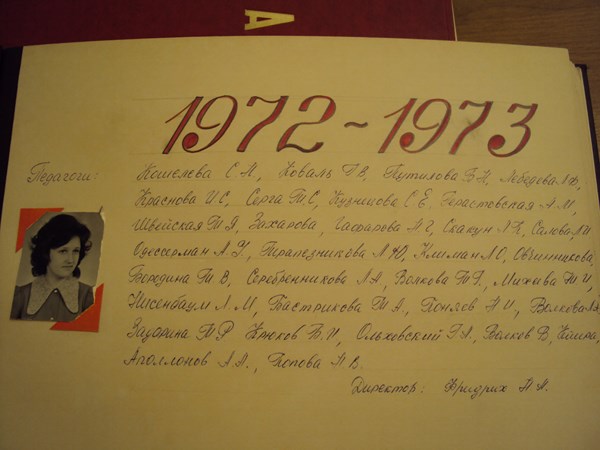 А
1972-1973
Педагоги: Кошелева С Н, Коваль Г В, Путилова В Н, Лебедева Л Ф,
Краснова И С, Серга Т С, Кузнецова С Е, Герастовская А М,
Швейская Т Я, Захарова, Гасфарова Л Г, Скакун Л К, Салова
Одессерман А У, Трапезникова Л Ю, Климан Л О, Овчинникова,
Бородина Т В, Серебренникова Л А, Волкова Т Г, Михеева Т И,
Нисенбаум Л М, Бастрикова Т А, Поняев Н И, Волкова
Задорина Т Р, Крюков В И, Ольховский Г А, Волков В,
Аполлонов А А., Попова Н В.
Директор: Фридрих Н А.